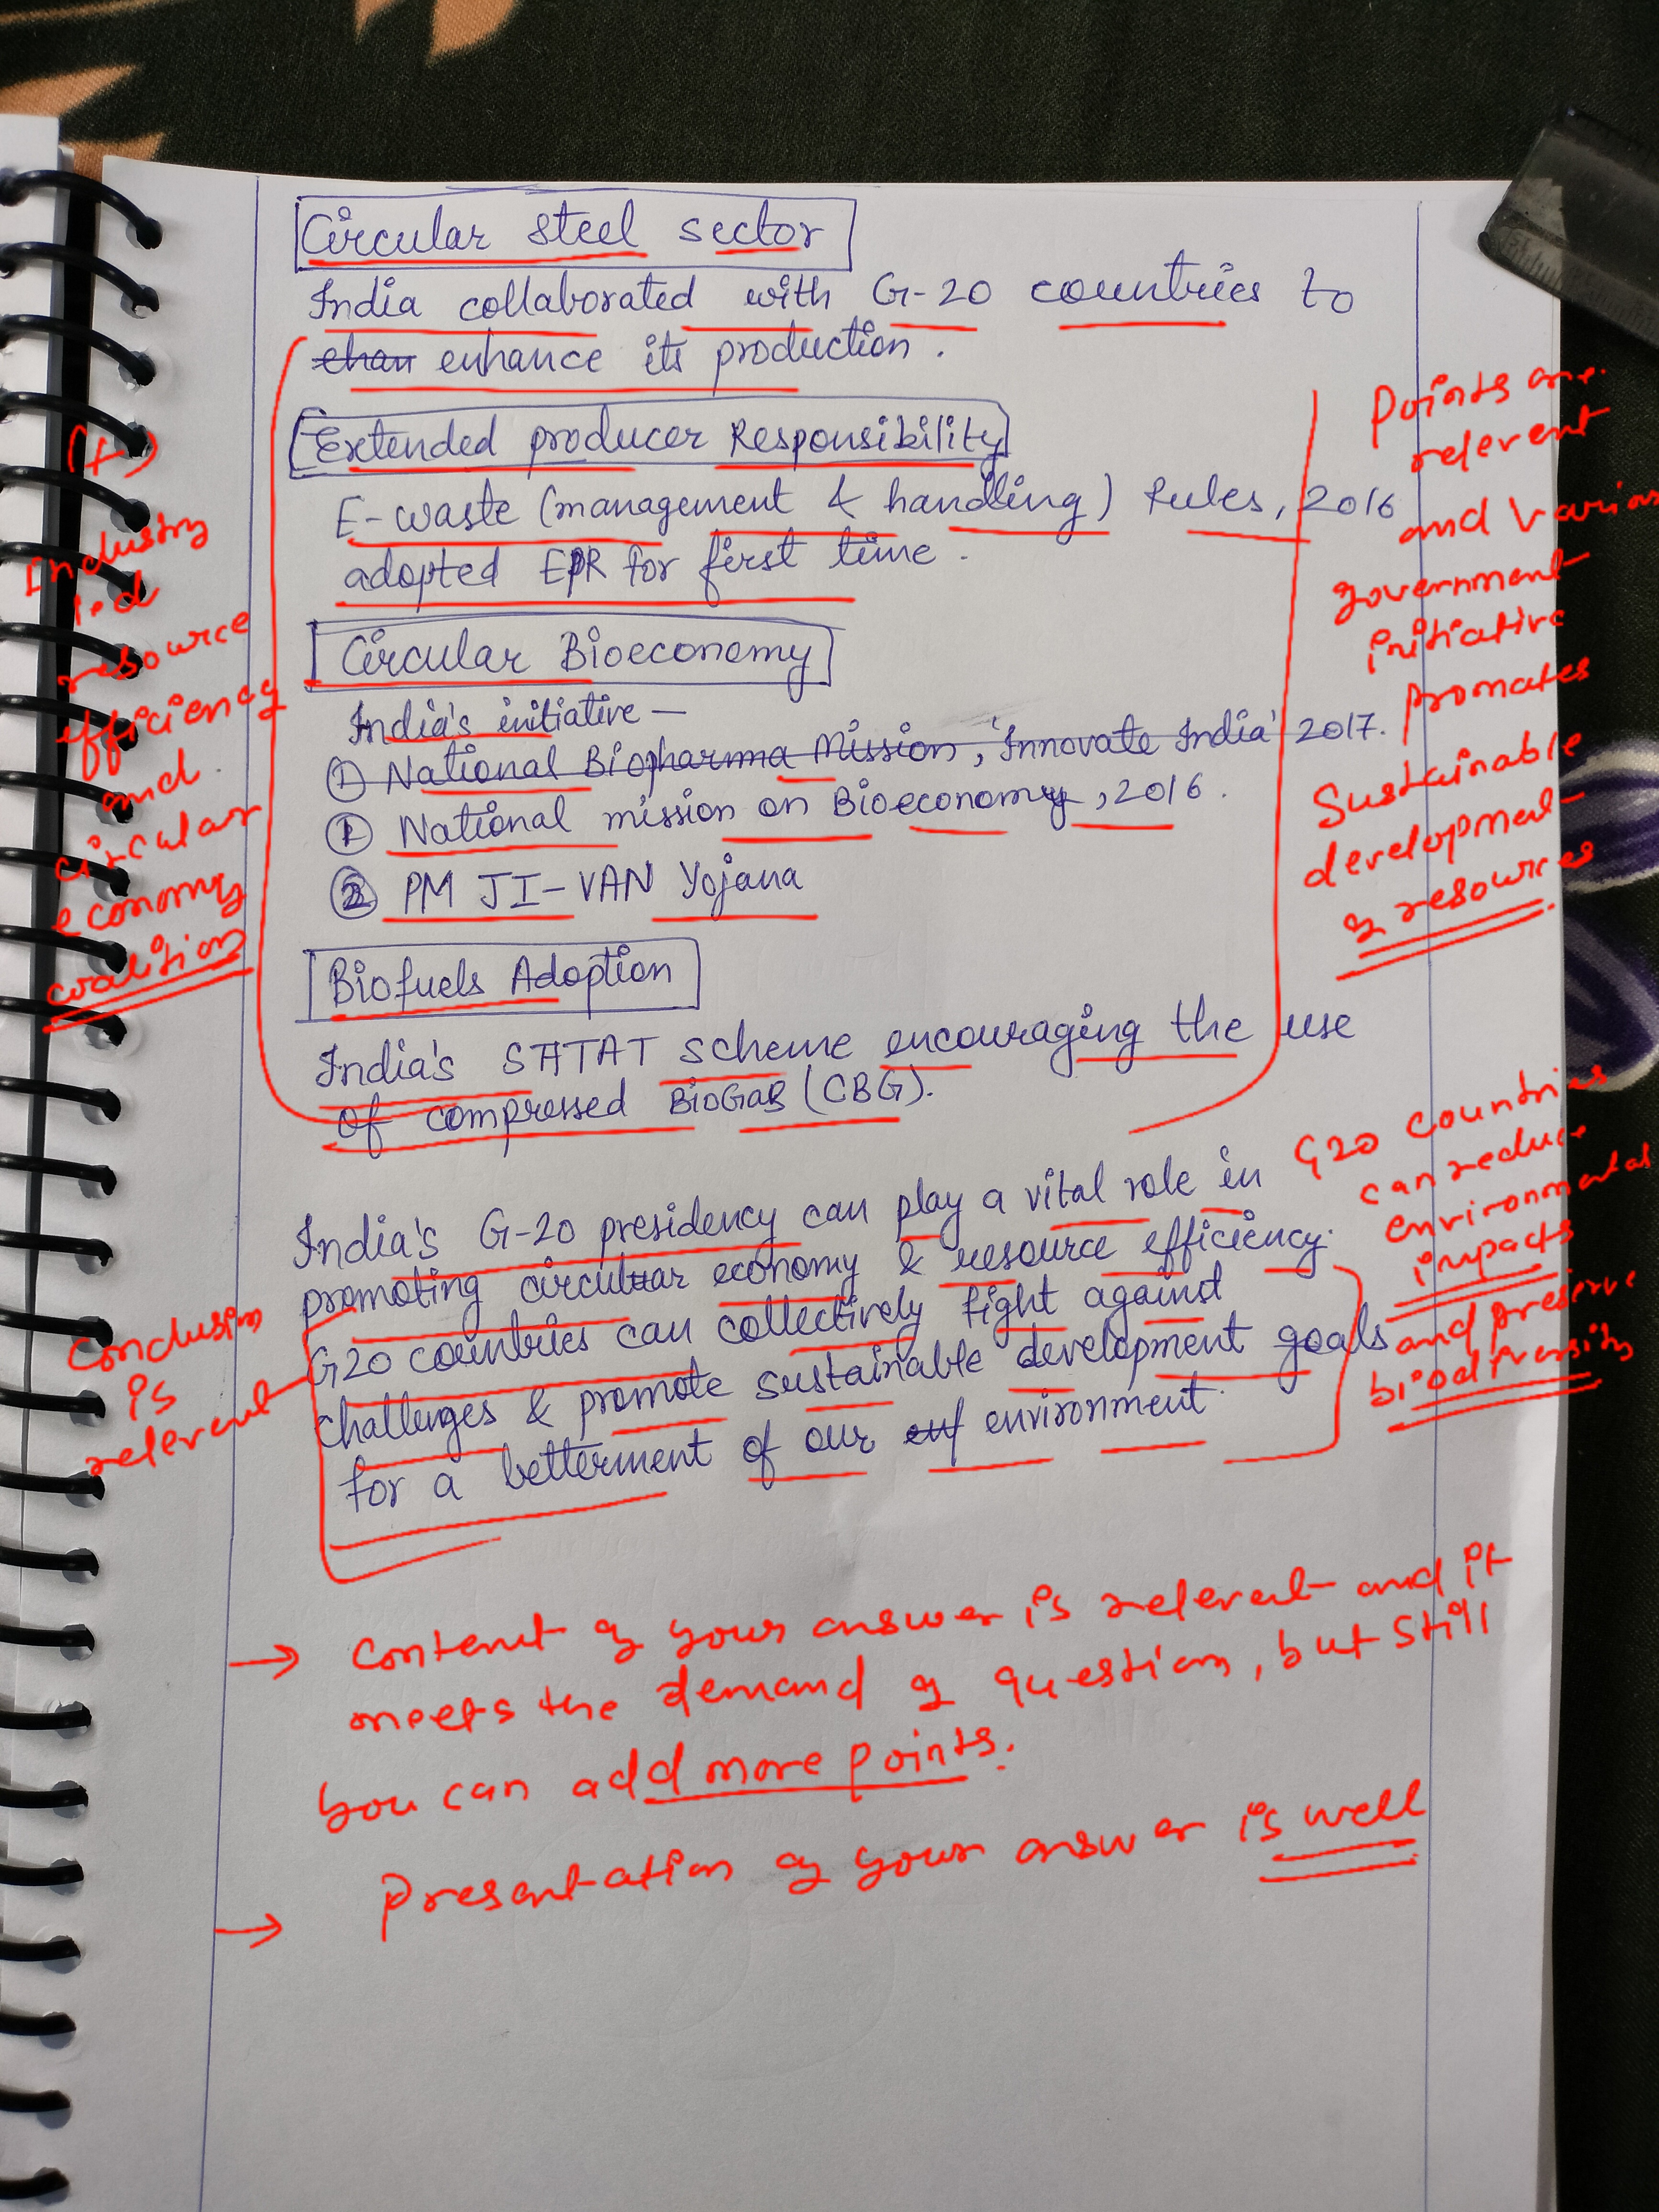 Circular steel sector
India collaborated with G-20 countries to
enhance its production.
Extended producer Responsibility
E-waste (management & handling) Rules, 2016
adopted EPR for first time.
Circular Bioeconomy
India's initiative —
① National Biopharma Mission, 'Innovate India' 2017.
① National mission on Bioeconomy, 2016.
② PM JI-VAN Yojana
Biofuels Adoption
India's SATAT scheme encouraging the use
of compressed BioGas (CBG).
India's G-20 presidency can play a vital role in
promoting circular economy & resource efficiency.
G20 countries can collectively fight against
challenges & promote sustainable development goals
for a betterment of our environment.
(+)
Industry
led
resource
efficiency
and
circular
economy
coalition
Points are
relevent
and various
government
initiative
promotes
Sustainable
development
& resources
G20 countries
can reduce
environmental
impacts
and preserve
biodiversity
Conclusion
is
relevent
→ Content of your answer is relevent and it
meets the demand of question, but still
you can add more points.
→ Presentation of your answer is well